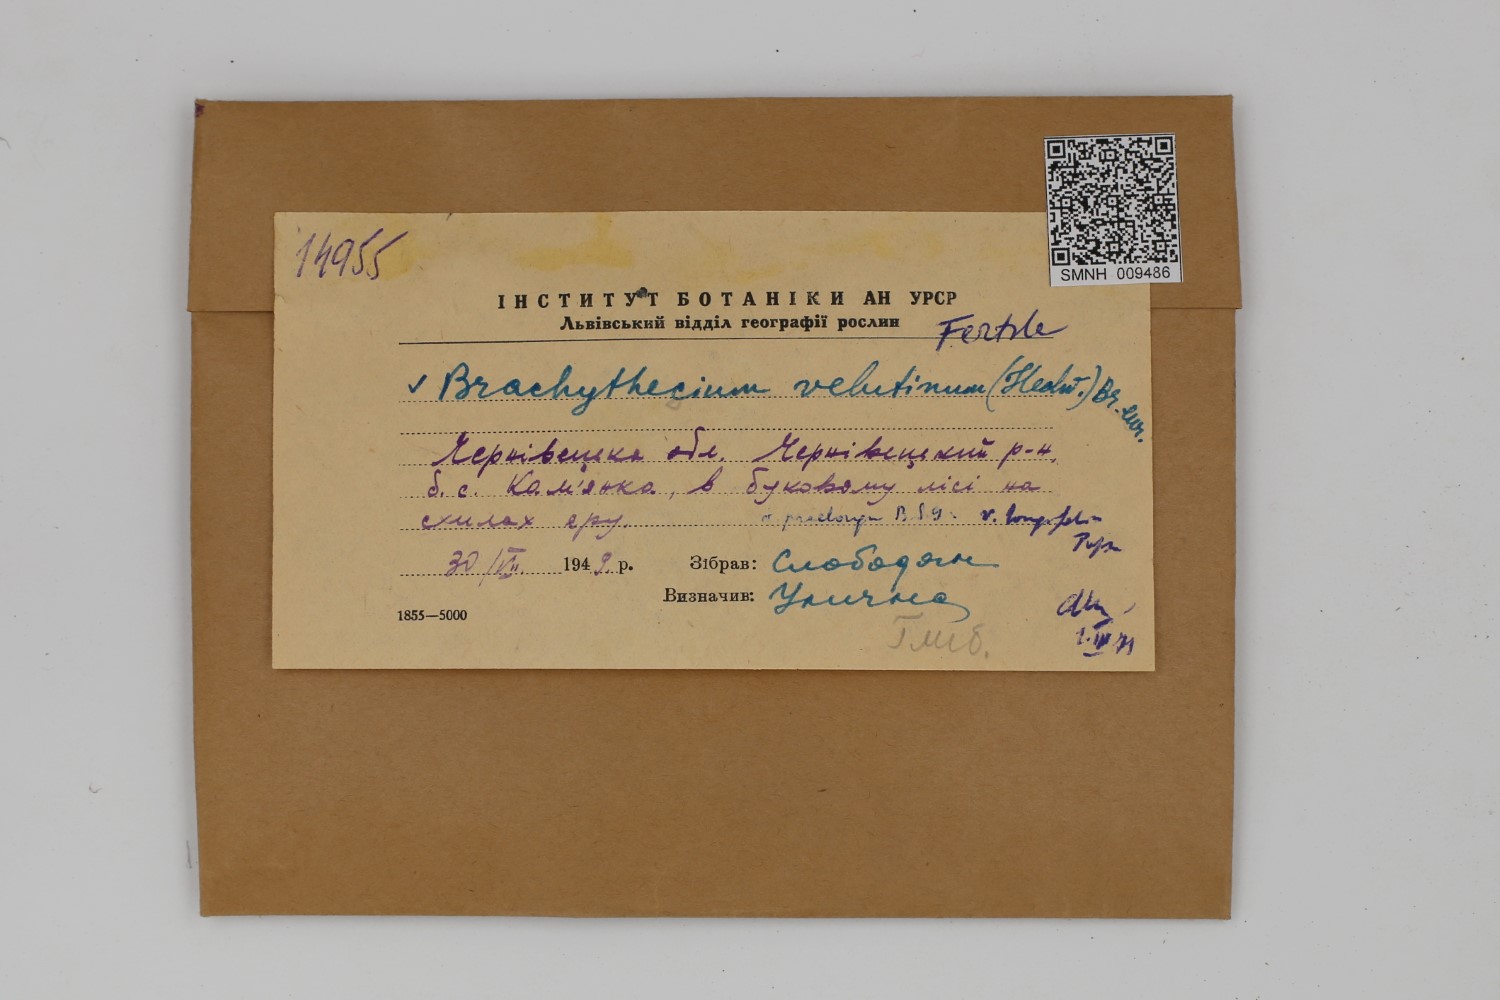 SMNH 009486
14955
ІНСТИТУТ БОТАНІКИ АН УРСР
Львівський відділ географії рослин
Fertile
✓ Brachythecium velutinum (Hedw.) Br. eur.
Чернівецька обл. Чернівецький р-н,
б. с. Кам'янка, в буковому лісі на
схилах яру.
v. praelongum B.S.G. v. longifolia
30/VII 1949 р. Зібрав: Слободян
Визначив: Улична
1855—5000
1.III 71